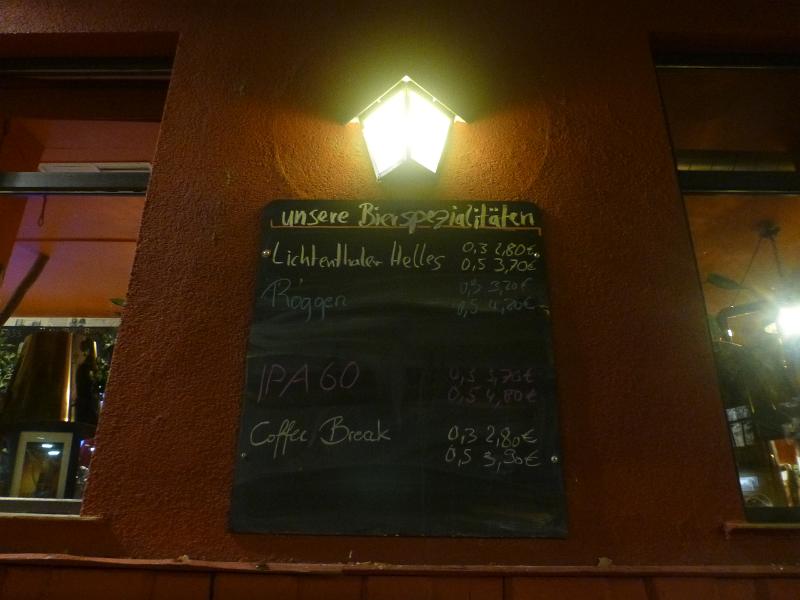 unsere Bierspezialitäten
Lichtenthaler Helles 0,3 2,80€
0,5 3,70€
Roggen 0,3 3,20€
0,5 4,20€
IPA 60 0,3 3,70€
0,5 4,80€
Coffee Break 0,3 2,80€
0,5 3,90€